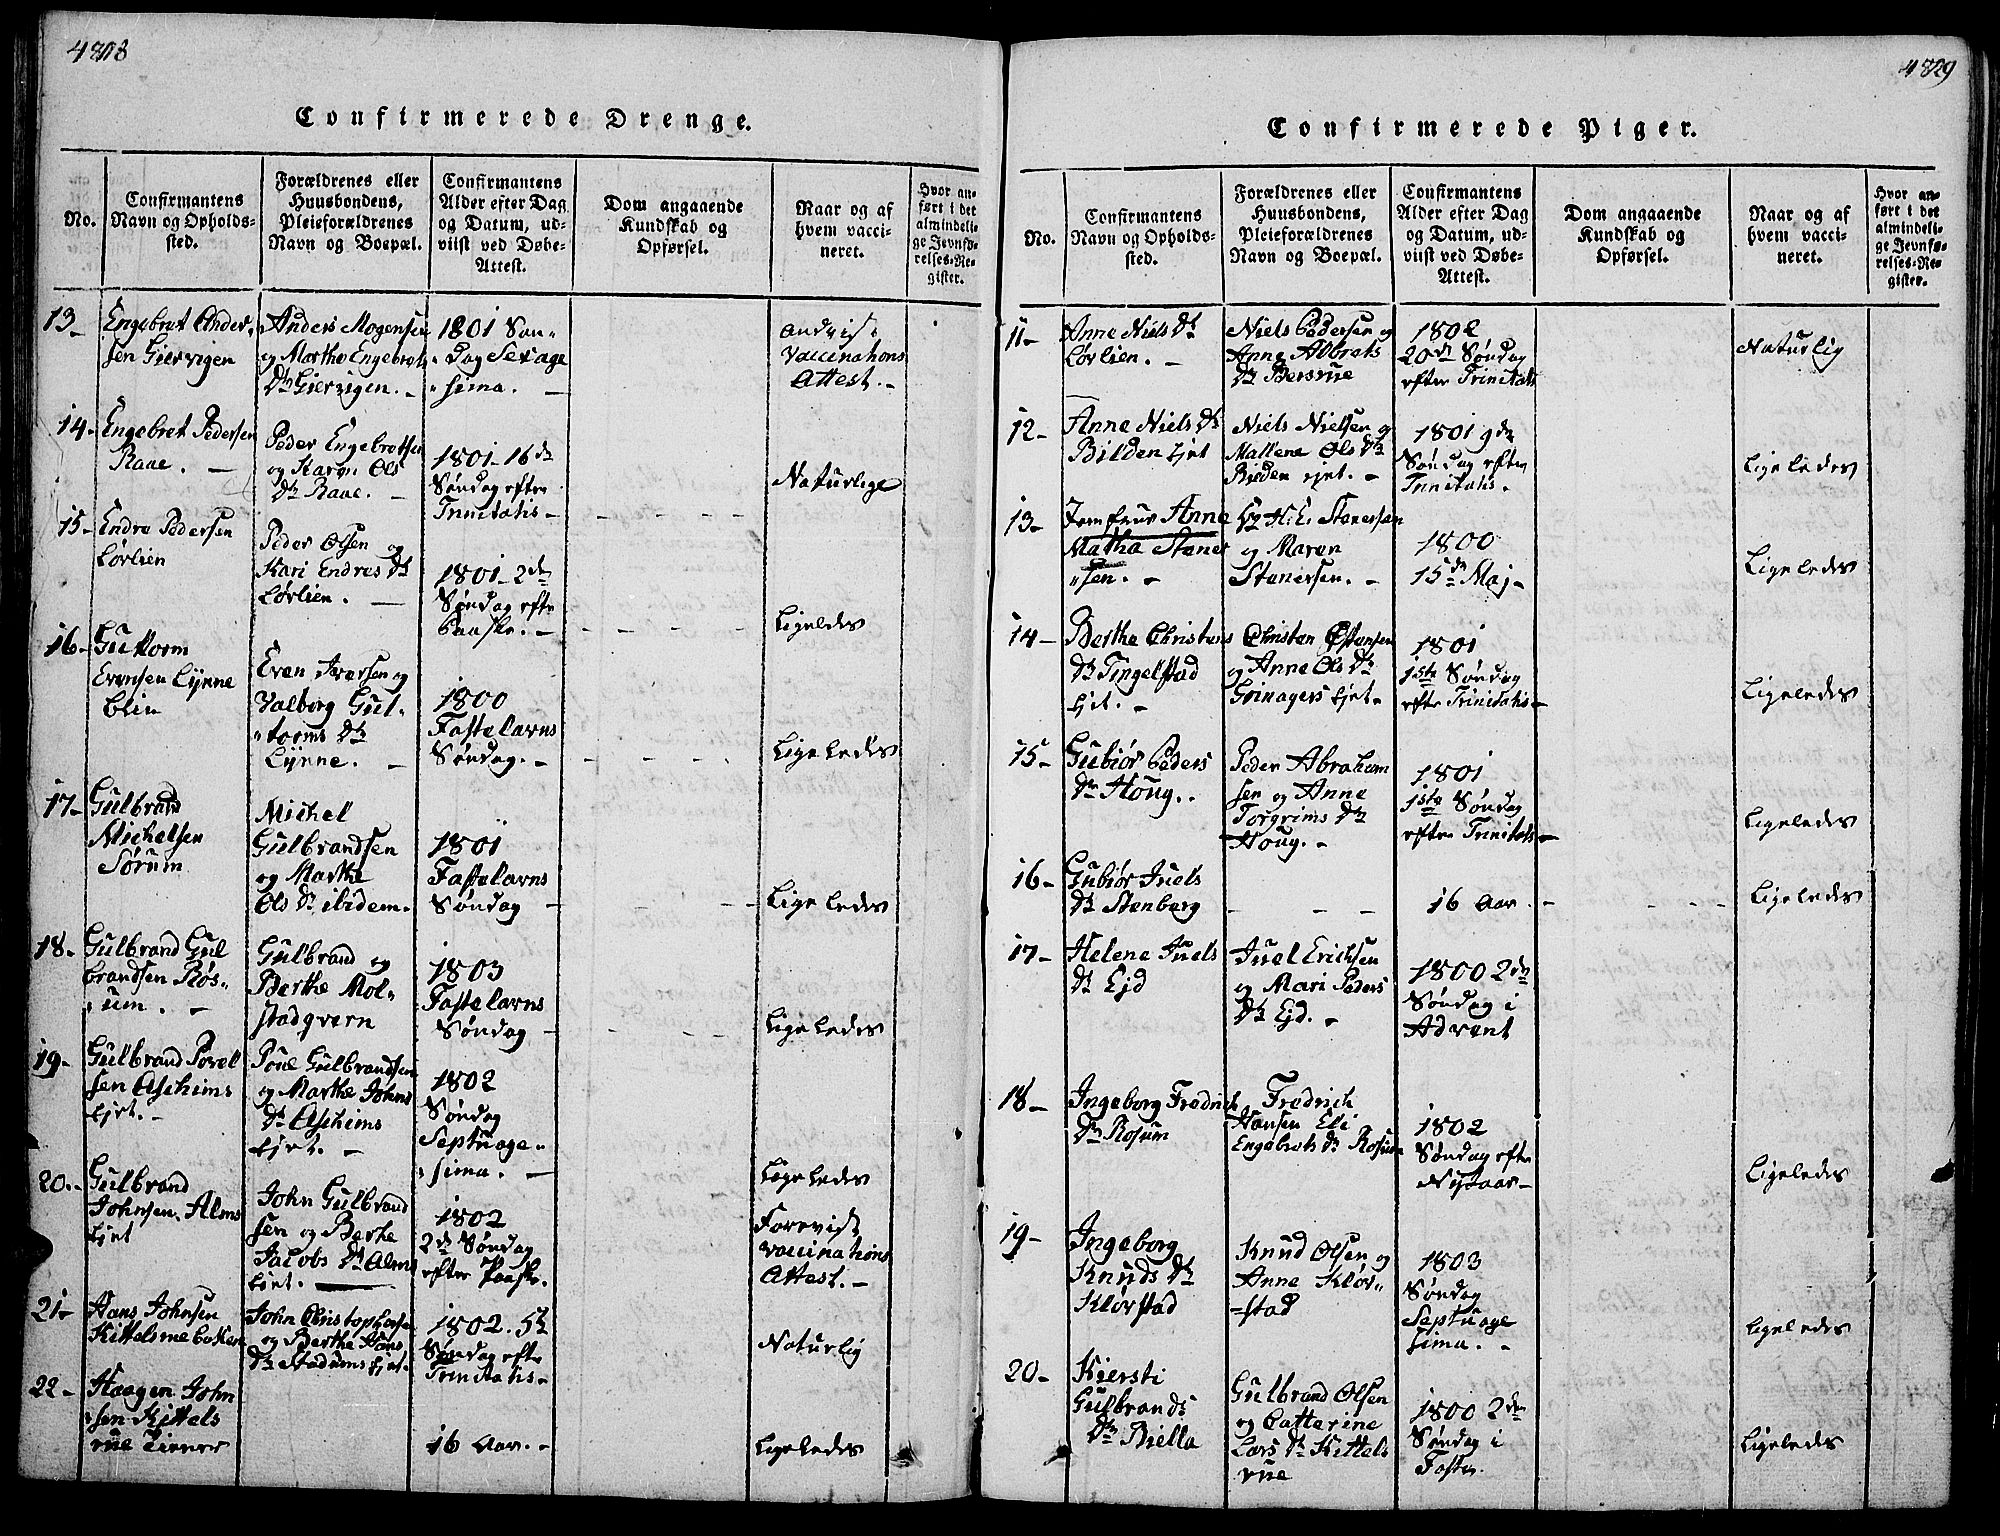 Confirmerede Drenge.
No.
Confirmantens
Navn og Opholds-
sted.
Forældrenes eller
Huusbondens,
Pleieforældrenes
Navn og Boepæl.
Confirmantens
Alder efter Dag
og Datum, ud-
viist ved Døbe-
Attest.
Dom angaaende
Kundskab og
Opførsel.
Naar og af
hvem vacci-
neret.
Hvor an-
ført i det
almindeli-
ge Jevnfø-
relses-Re-
gister.
13-
Engebret Ander-
sen Giervigen
Anders Mogensen
og Marthe Engebrets
Dtr Giervigen.
1801 Søn-
Dag Sexage
sima.
Vaccinations
Attest.
14-
Engebret Pedersen
Raae.
Peder Engebretsen
og Karen Ols
Dtr Raae.
1801-16de
Søndag efter
Trinitatis
Naturlige
15-
Endre Pedersen
Lørlien
Peder Olsen og
Kari Endres Dtr
Lørlien.
1801-2den
Søndag efter
Paaske.
Ligeledes
16-
Guttorm
Evensen Lynne
Even Iversen og
Valborg Gut-
torms Dtr
Lynne.
1800
Fastelavns
Søndag.
Ligeledes
17-
Gulbrand
Michelsen
Sørum
Michel
Gulbrandsen
og Marthe
Ols Dtr ibidem.
1801
Fastelavns
Søndag
Ligeledes
18-
Gulbrand Gul
brandsen Røs-
um.
Gulbrand og
Berthe Mol-
stadqvern
1803
Fastelavns
Søndag
Ligeledes
19-
Gulbrand Povel
sen Aschims
Ejet.
Poul Gulbrandsen
og Marthe Johns
Dtr Aschims
Ejet.
1802
Søndag
Septuage-
sima.
Ligeledes
20.
Gulbrand
Johnsen Alms
Ejet
John Gulbrand
sen og Berthe
Jacobs Dtr Alms
Ejet.
1802
2den Søndag
efter Paaske.
Forevist
vaccinations
Attest.
21-
Hans Johnsen
John Christophersen
og Berthe Hans
Dtr Stadums Ejet.
1802. 5te
Søndag efter
Trinitatis
Naturlig
22-
Haagen John
sen Kittels
rue
16 Aar.
Ligeledes
Confirmerede Piger.
No.
Confirmantens
Navn og Opholds-
sted.
Forældrenes eller
Huusbondens,
Pleieforældrenes
Navn og Boepæl.
Confirmantens
Alder efter Dag
og Datum, ud-
viist ved Døbe-
Attest.
Dom angaaende
Kundskab og
Opførsel.
Naar og af
hvem vacci-
neret.
Hvor an-
ført i det
almindeli-
ge Jevnfø-
relses-Re-
gister.
11-
Anne Niels Dtr
Lørlien.
Niels Pedersen og
Anne Albrets
Dtr Bersrue
1802
20de Søndag
efter Trinitatis
Naturlig
12-
Anne Niels Dtr
Bilden Ejet
Niels Nielsen og
Mallene Ols Dtr
Bilden Ejet.
1801 9de
Søndag efter
Trinitatis.
Ligeledes
13-
Jomfrue Anne
Matha Stener
sen.
Stenersen
og Maren
Stenersen.
1800
15de Maj
Ligeledes
14-
Berthe Christens
Dtr Tingelstad
Ejet.
Christen Østensen
og Anne Ols Dtr
Grinagers Ejet
1801
1ste Søndag
efter Trinitatis
Ligeledes
15-
Gubiør Peders
Dtr Houg.
Peder Abraham
sen og Anne
Torgrims Dtr
Houg.
1801
1ste Søndag
efter Trinitatis
Ligeledes
16-
Gubiør Juels
Dtr Stenberg
16 Aar.
Ligeledes
17-
Helene Juels
Dtr Ejd
Juel Erichsen
og Mari Peders
Dtr Ejd.
1800 2den
Søndag i
Advent
18-
Ingeborg Fredrich
Dtr Rosum
Fredrich
Hansen Eli
Engebrets Dtr Rosum
1802
Søndag efter
Nytaar
Ligeledes
19-
Ingeborg
Knuds Dtr
Klørstad
Knud Olsen og
Anne Klør-
stad
1803
Søndag
Septuage
sima.
Ligeledes
20-
Kiersti
Gulbrands
Dtr Biella
Gulbrand Olsen
og Catterine
Lars Dtr Kittels
rue
1800 2den
Søndag i
Faste.
Ligeledes